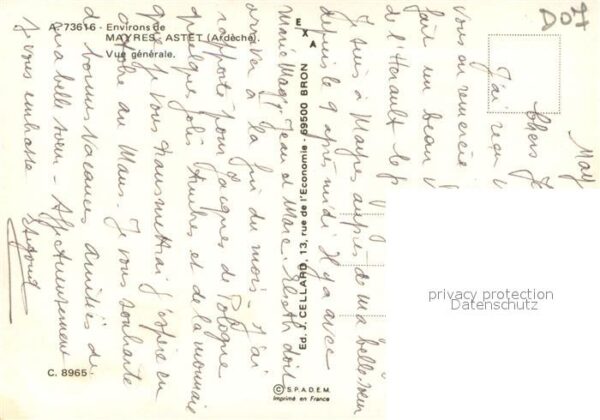 A. 73616 - Environs de
MAYRES-ASTET (Ardèche).
Vue générale.
EXA
A07
May
Chers J
J'ai reçu v
vous en remercie
fait un beau v
de l'Hérault le p
Je suis à Mayres auprès de ma belle-sœur
depuis le 9 après midi. Il y a avec
Marie Magd, Jean et Marc. doit
arriver à la fin du mois - J'ai
rapporté pour Jacques de Pologne
quelques jolis timbres et de la monnaie
que je vous transmettrai j'espère en
octobre au Mans. Je vous souhaite
de bonnes vacances, amitiés de
ma belle sœur - Affectueusement
je vous embrasse
Ed. J. CELLARD, 13, rue de l'Economie - 69500 BRON
C. 8965 -
© S.P.A.D.E.M.
Imprimé en France
privacy protection
Datenschutz